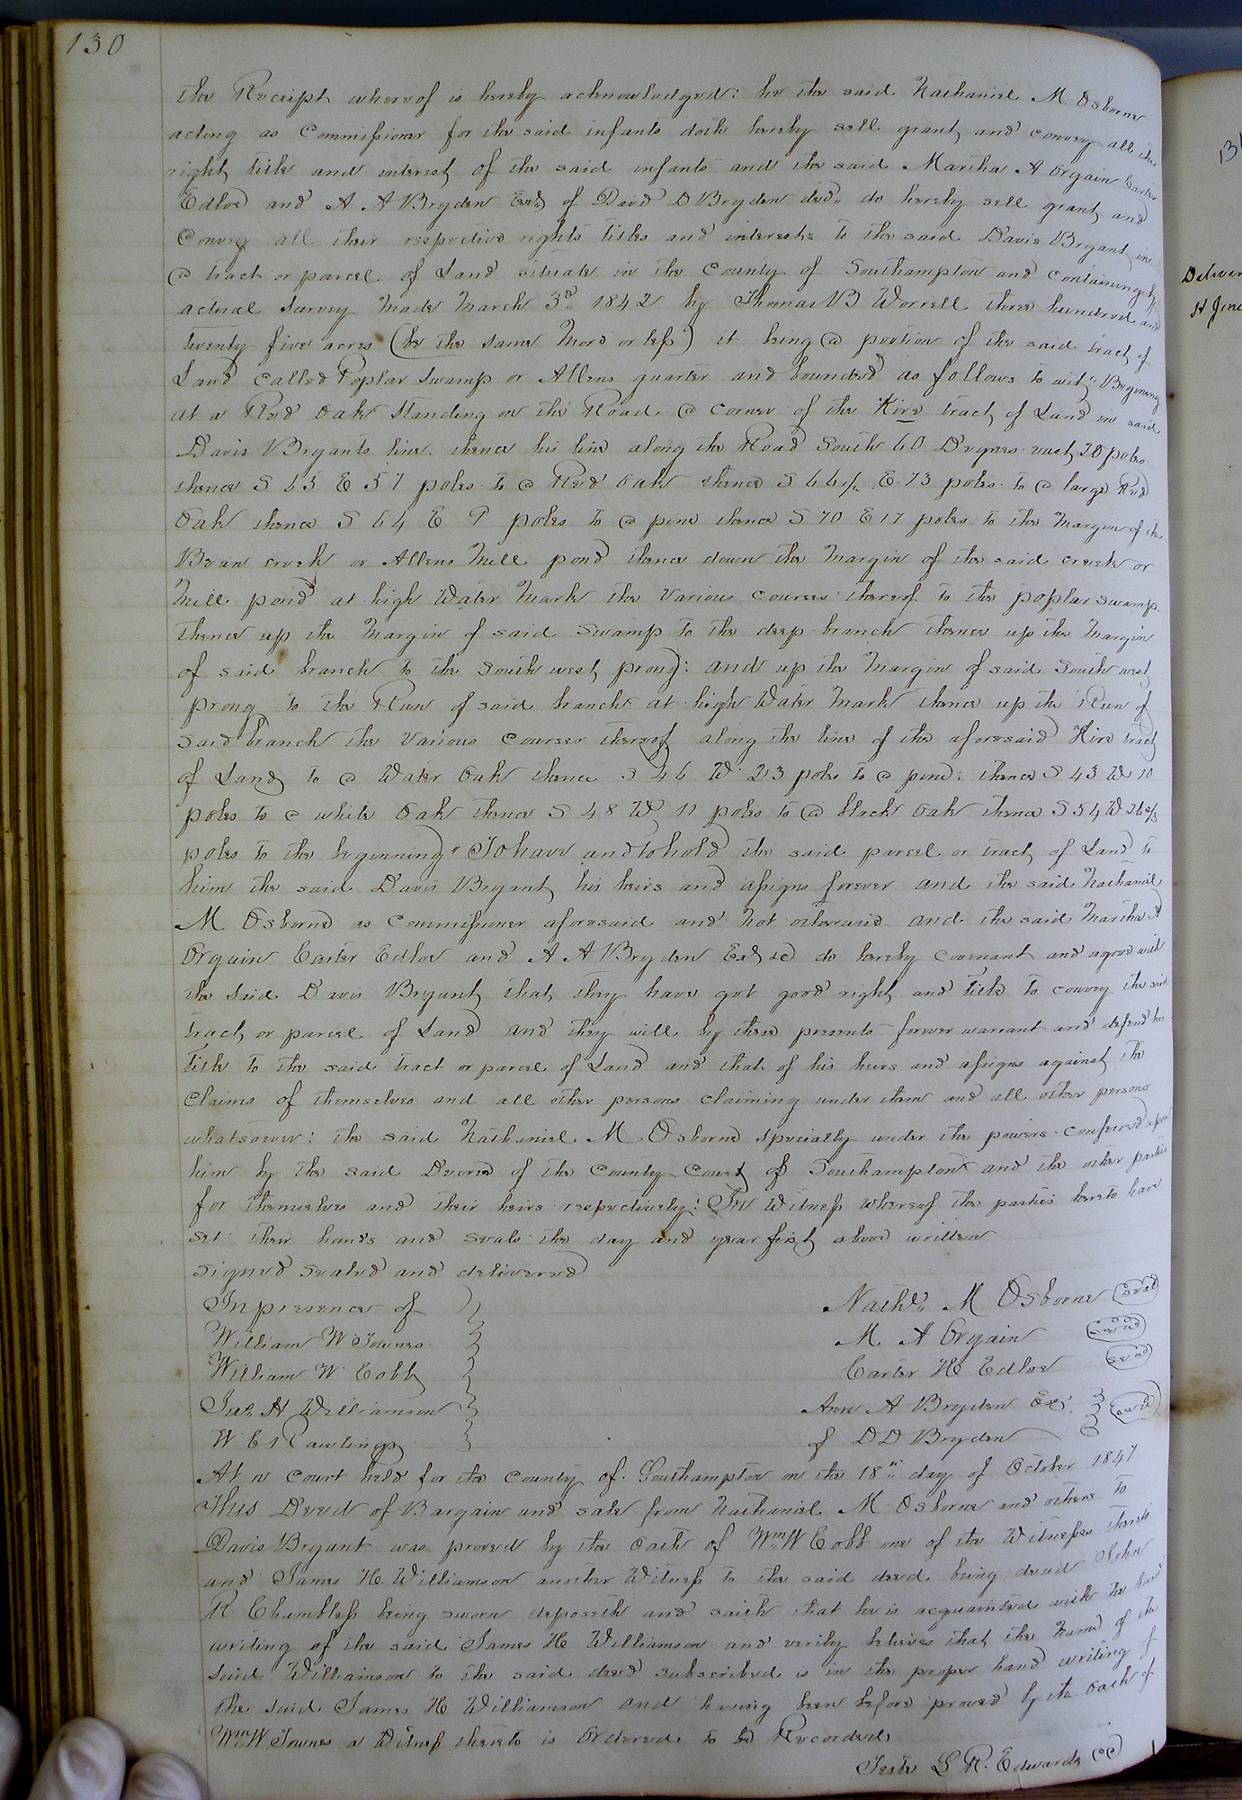 130
the Receipt whereof is hereby acknowledged: he the said Nathaniel M Osborne
acting as Commissioner for the said infants doth hereby sell grant and convey all the
right title and interest of the said infants and the said Martha A Orgain Carter
Edloe and A A Bryden Exx of David D Bryden decd. do hereby sell grant and
Convey all their respective rights titles and interests to the said Davis Bryant in
a tract or parcel of Land situate in the County of Southampton and containing by
actual survey made March 3d. 1842 by Thomas B Worrell three hundred and
twenty five acres (be the same more or less) it being a portion of the said tract of
Land called Poplar Swamp or Allens quarter and bounded as follows to wit, "Begining
at a Red Oak standing on the Road a corner of the Hire tract of Land in said
Davis Bryants line. thence his line along the Road South 60 Degrees east 20 poles
thence S 63 E 37 poles to a Red Oak thence S 66½ E 73 poles to a large Red
Oak thence S 64 E 9 poles to a pine thence S 70 E 17 poles to the Margin of the
Bear creek or Allens Mill pond thence down the Margin of the said creek or
Mill pond at high Water Mark the Various Courses thereof to the poplar swamp
thence up the Margin of said Swamp to the deep branch thence up the Margin
of said branch to the South west prong: and up the Margin of said South west
prong to the Run of said branch at high Water Mark thence up the Run of
said branch the Various Courses thereof along the line of the aforesaid Hire tract
of Land to a Water Oak thence S 46 W 23 poles to a pine: thence S 43 W 10
poles to a white Oak thence S 48 W 11 poles to a black Oak thence S 54 W
poles to the beginning" To have and to hold the said parcel or tract of Land to
him the said Davis Bryant his heirs and assigns forever and the said Nathaniel
M Osborne as Commissioner aforesaid and not otherwise and the said Martha A
Orgain Carter Edloe and A A Bryden Exx &c do hereby covenant and agree with
the said Davis Bryant that they have got good right and title to convey the said
tract or parcel of Land and they will by these presents forever warrant and defend his
title to the said tract or parcel of Land and that of his heirs and assigns against the
Claims of themselves and all other persons claiming under them and all other persons
whatsoever: the said Nathaniel M Osborne specially under the powers conferred upon
him by the said Decree of the County Court of Southampton and the other parties
for themselves and their heirs respectively: In Witness whereof the parties hereto have
set their hands and seals the day and year first above written
Signed sealed and delivered
In presence of
Nathl. M Osborne (seal)
William W Townes
M A Orgain (seal)
William W Cobb
Carter H Edloe (seal)
Jas. H Williamson
Ann A Bryden Exx. (seal)
W E Rawlings
of D D Bryden
At a Court held for the County of Southampton on the 18th day of October 1847
This Deed of Bargain and sale from Nathaniel M Osborne and others to
Davis Bryant was proved by the Oath of Wm W Cobb one of the Witnesses thereto
and James H Williamson another Witness to the said deed being dead John
R Chambless being sworn deposeth and saith that he is acquainted with the hand
writing of the said James H Williamson and verily believes that the Name of the
said Williamson to the said deed subscribed is in the proper hand writing of
the said James H Williamson and having been before proved by the Oath of
Wm W Townes a Witness thereto is Ordered to be Recorded
Teste L R. Edwards CC
131
Deliver